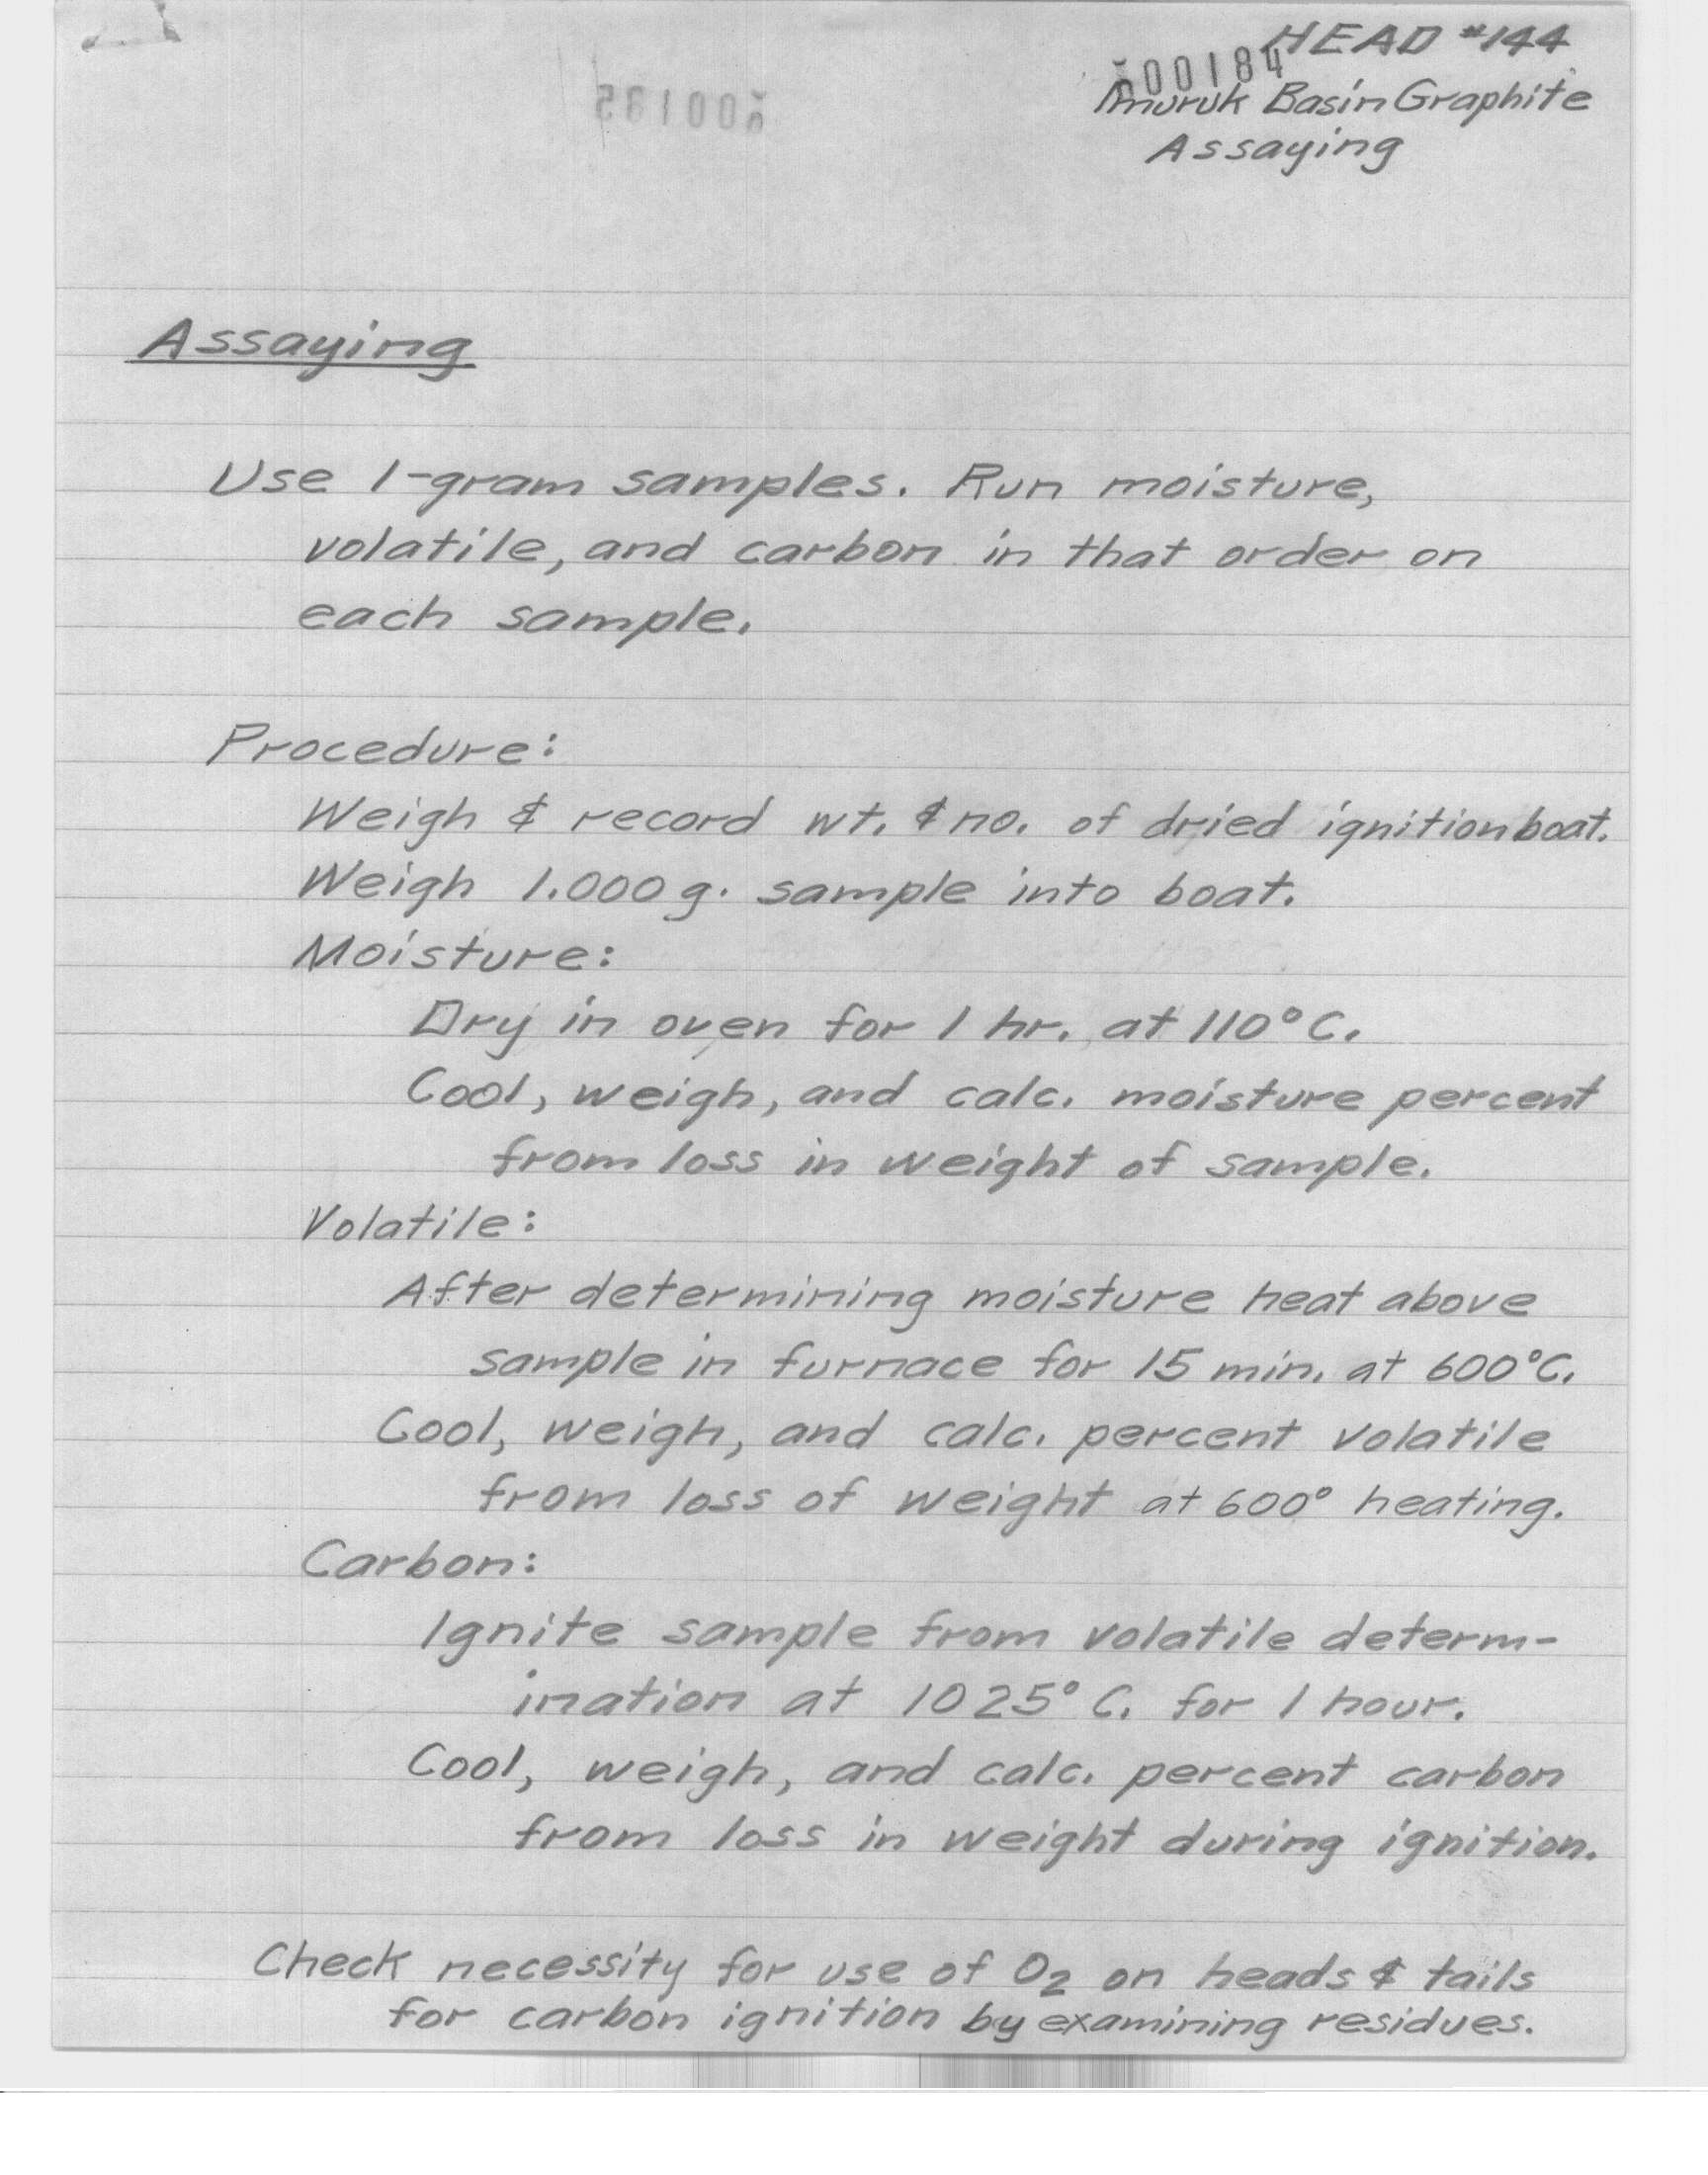 HEAD #144
000184
Imuruk Basin Graphite
Assaying
Assaying
Use 1-gram samples. Run moisture,
volatile, and carbon in that order on
each sample.
Procedure:
Weigh & record wt. & no. of dried ignition boat.
Weigh 1.000 g. sample into boat.
Moisture:
Dry in oven for 1 hr. at 110° C.
Cool, weigh, and calc. moisture percent
from loss in weight of sample.
Volatile:
After determining moisture heat above
sample in furnace for 15 min. at 600°C.
Cool, weigh, and calc. percent volatile
from loss of weight at 600° heating.
Carbon:
Ignite sample from volatile determ-
ination at 1025° C. for 1 hour.
Cool, weigh, and calc. percent carbon
from loss in weight during ignition.
Check necessity for use of O2 on heads & tails
for carbon ignition by examining residues.